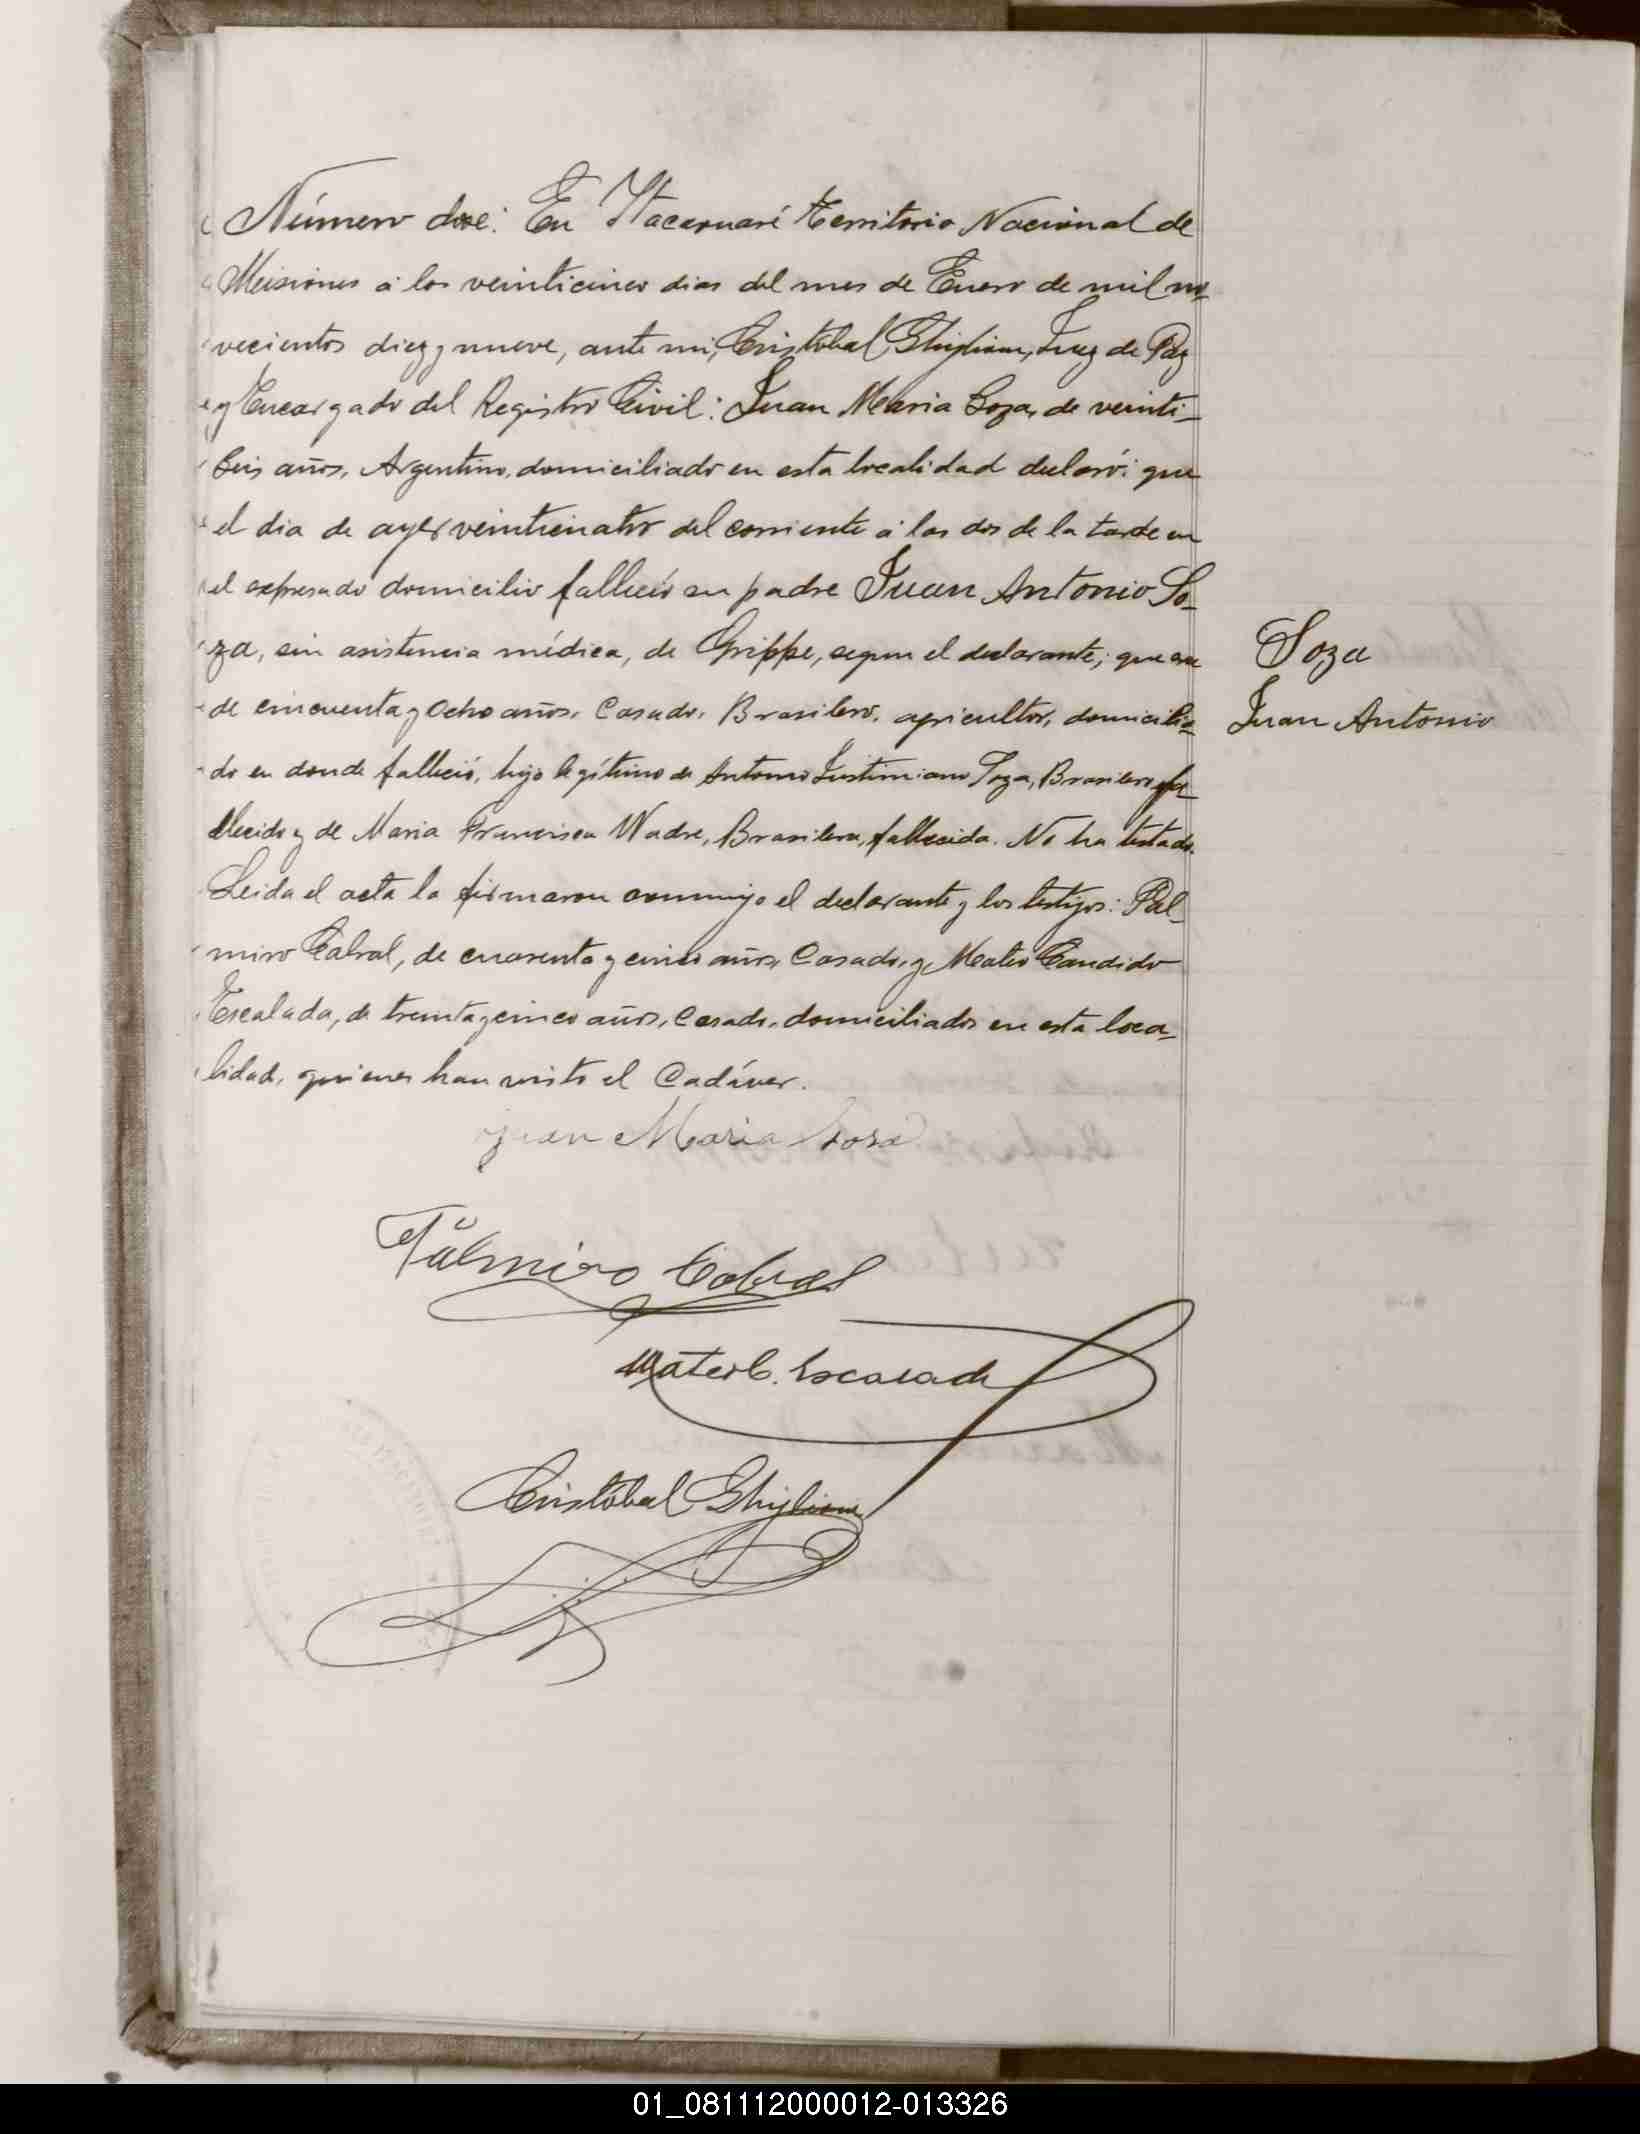 Número doce: En Itacaruaré Territorio Nacional de
Misiones á los veinticinco dias del mes de Enero de mil no-
vecientos diez y nueve, ante mi, Cristóbal Ghiglione, Juez de Paz
y Encargado del Registro Civil: Juan Maria Soza, de veinti-
seis años, Argentino, domiciliado en esta localidad declaró: que
el dia de ayer veinticuatro del corriente á las dos de la tarde en
el expresado domicilio falleció su padre Juan Antonio So-
za, sin asistencia médica, de Grippe, segun el declarante; que era
de cincuenta y ocho años, Casado, Brasilero, agricultor, domicilia-
do en donde falleció, hijo legítimo de Antonio Justiniano Soza, Brasilero fa-
llecido y de Maria Francisca Wadre, Brasilera, fallecida. No ha testado.
Leida el acta la firmaron conmigo el declarante y los testigos: Pal-
miro Cabral, de cuarenta y cinco años, Casado, y Mateo Candido
Escalada, de treinta y cinco años, Casado, domiciliados en esta loca-
lidad, quienes han visto el Cadáver.
Soza
Juan Antonio
Juan Maria Sosa
Palmiro Cabral
Mateo C. Escalada
Cristóbal Ghiglione
01_081112000012-013326